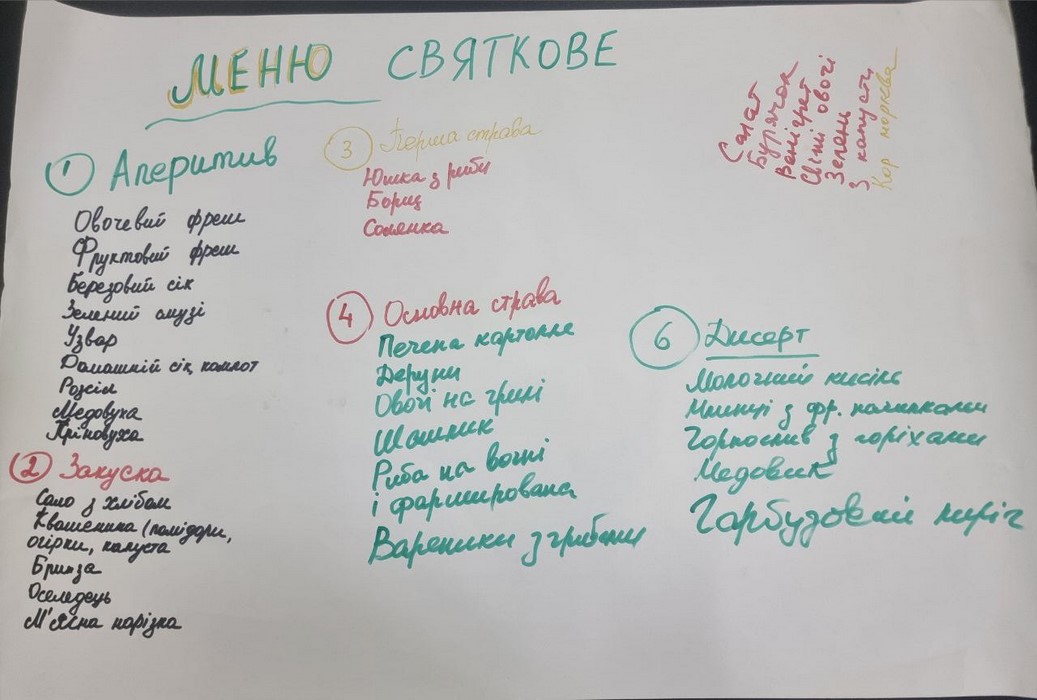 МЕНЮ СВЯТКОВЕ
1 Аперитив
Овочевий фреш
Фруктовий фреш
Березовий сік
Зелений смузі
Узвар
Домашній сік, компот
Розсіл
Медовуха
Хріновуха
2 Закуска
Сало з хлібом
Квашенина (помідори,
огірки, капуста
Бринза
Оселедець
М'ясна нарізка
3 Перша страва
Юшка з риби
Борщ
Солянка
4 Основна страва
Печена картопля
Деруни
Овочі на грилі
Шашлик
Риба на вогні
і фарширована
Вареники з грибами
Салат
Бурячок
Вінігрет
Свіжі овочі
Зелень
З капусти
Кор морква
6 Дисерт
Молочний кисіль
Млинці з фр. начинками
Чорнослив з горіхами
Медовик
Гарбузовий пиріг